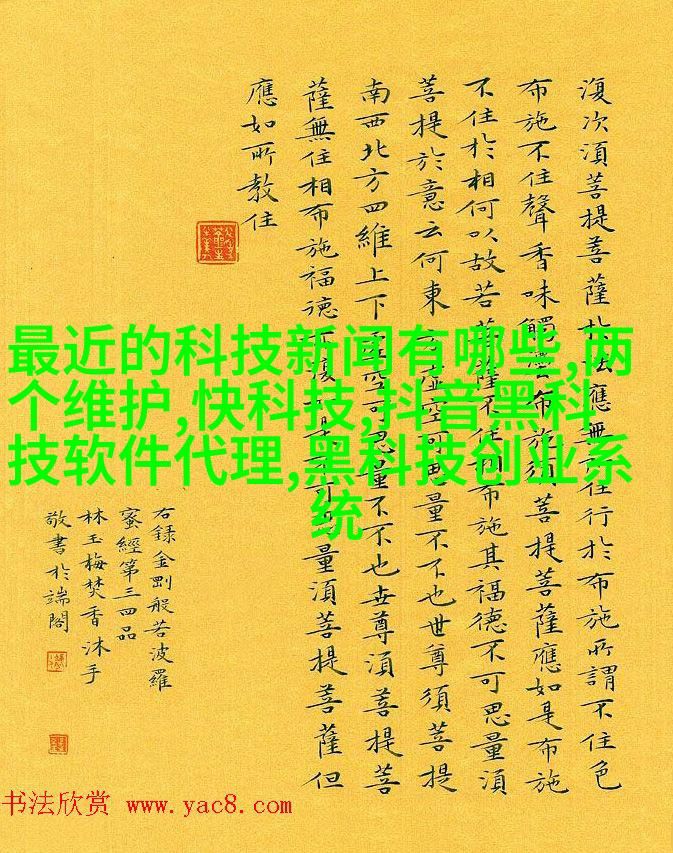 最近的科技新闻有哪些,两
个维护,快科技,抖音黑科
技软件代理,黑科技创业系
统
復次湏菩提菩薩於法應無所住行於布施所謂不住色
布施不住聲香味觸法布施須菩提菩薩應如是布施
不住於相何以故若菩薩不住相布施其福德不可思量湏
菩提於意云何東方虛空可思量不不也世尊須菩提
南西北方四維上下虛空可思量不不也世尊湏菩提菩
薩無住相布施福德亦復如是不可思量湏菩提菩薩但
應如所教住
右録金剛般若波羅
蜜經第三四品
林玉梅焚香沐手
敬書於端閣
书法欣赏 www.yac8.com